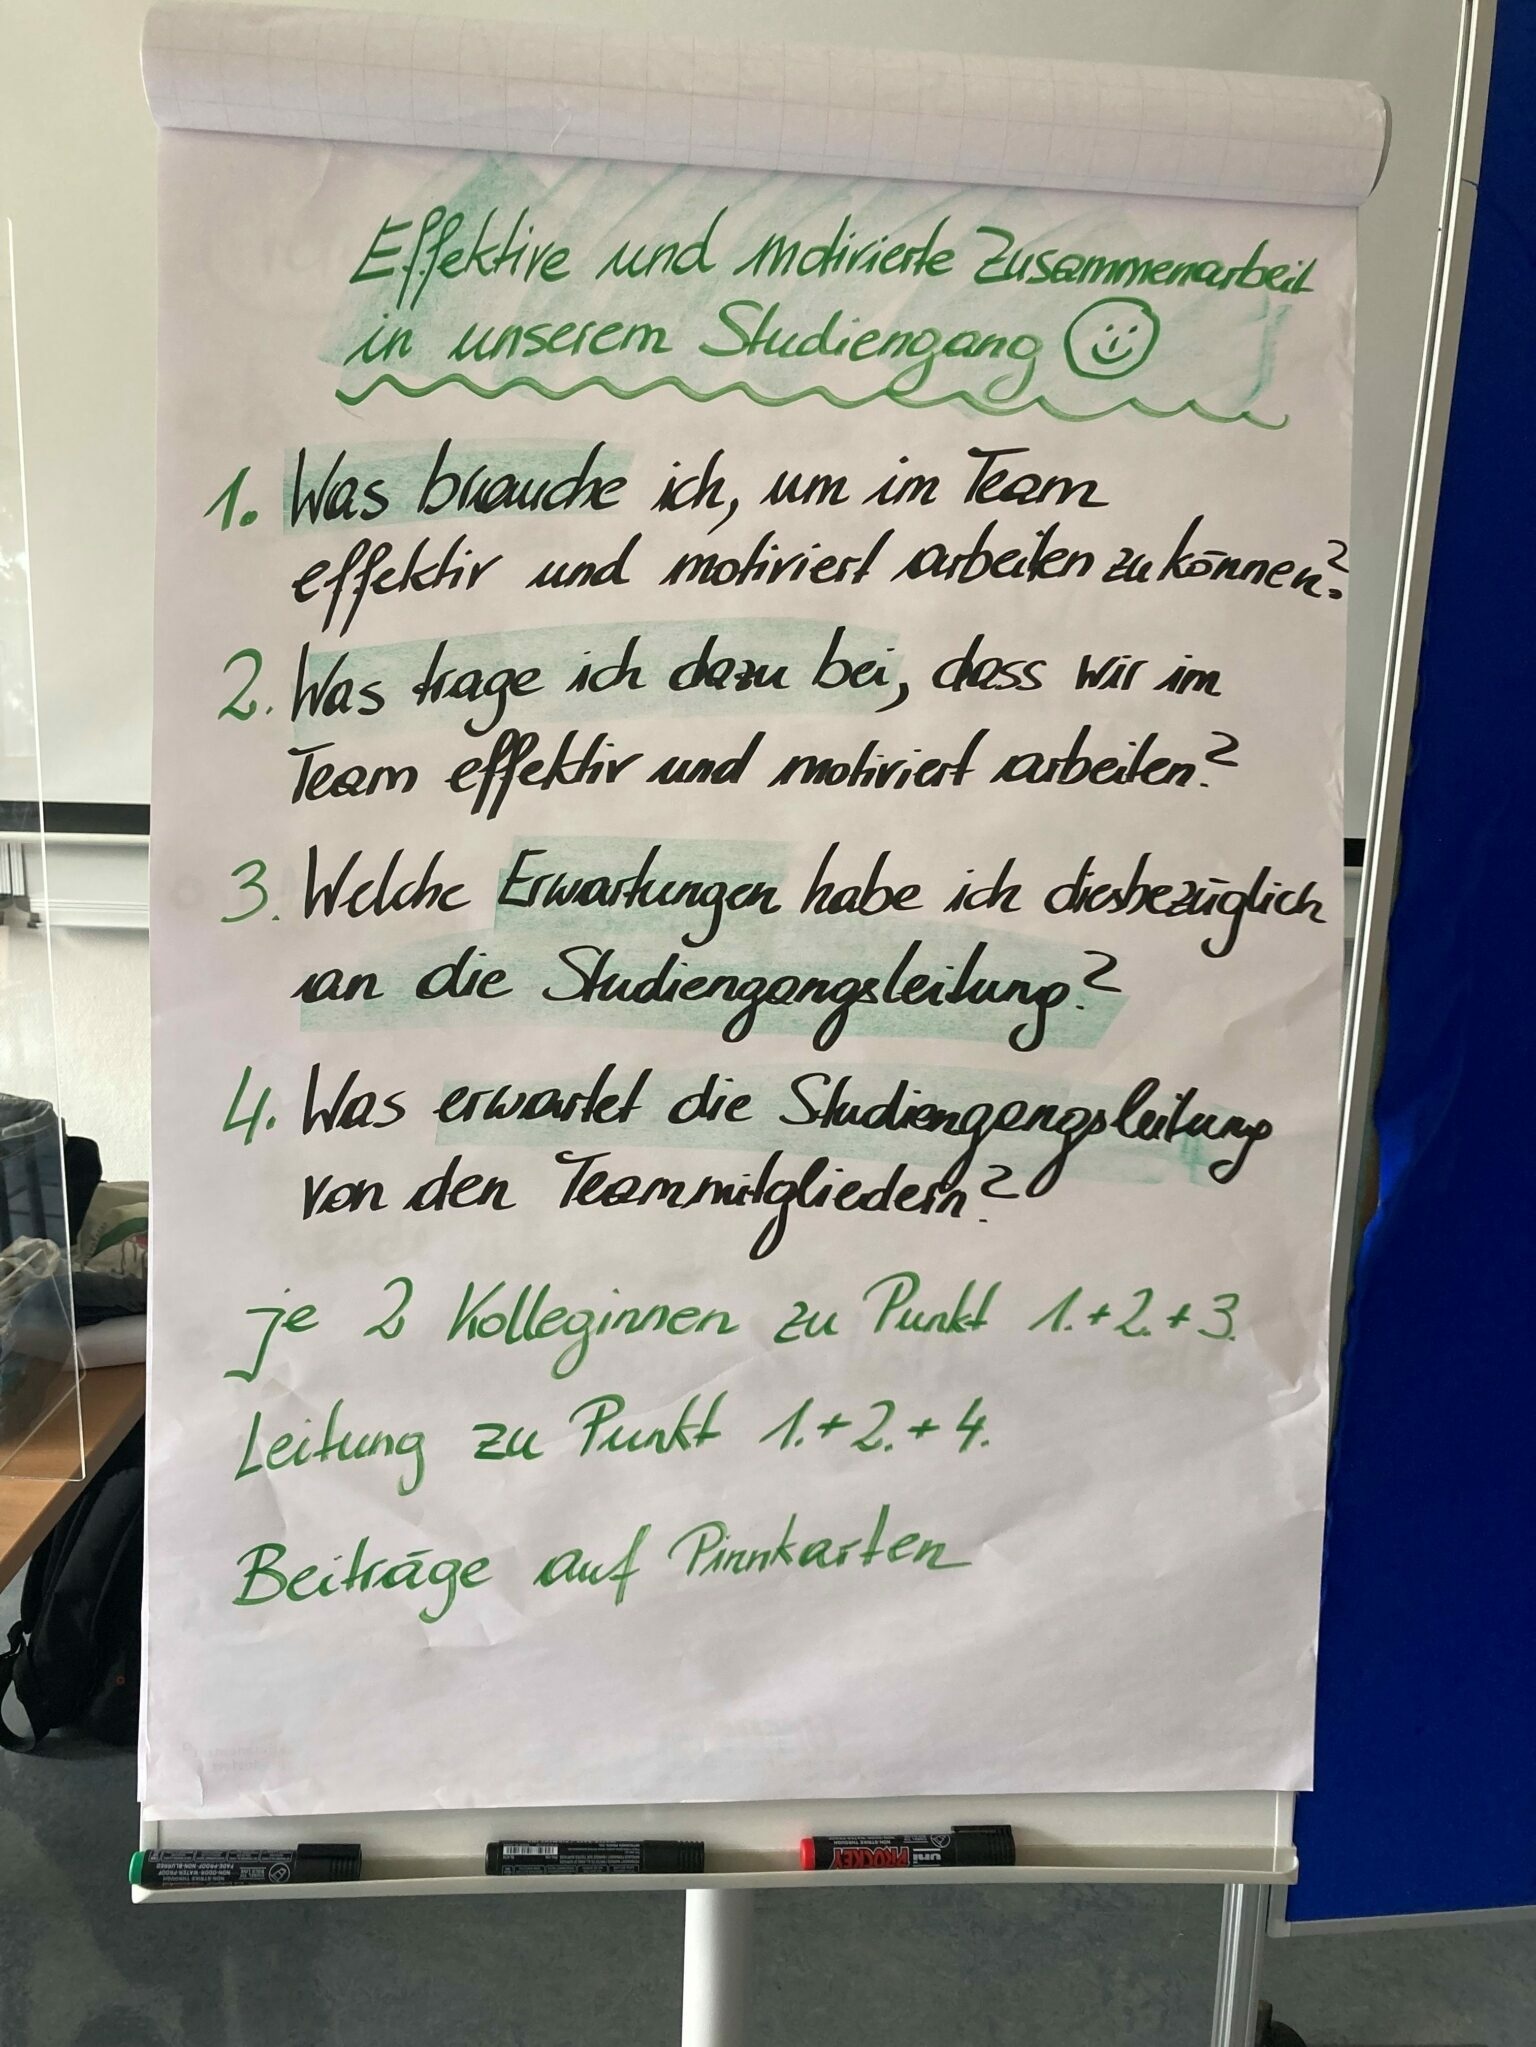 Effektive und motivierte Zusammenarbeit
in unserem Studiengang
1. Was brauche ich, um im Team
effektiv und motiviert arbeiten zu können?
2. Was trage ich dazu bei, dass wir im
Team effektiv und motiviert arbeiten?
3. Welche Erwartungen habe ich diesbezüglich
an die Studiengangsleitung?
4. Was erwartet die Studiengangsleitung
von den Teammitgliedern?
je 2 Kolleginnen zu Punkt 1.+2.+3.
Leitung zu Punkt 1.+2.+4.
Beiträge auf Pinnkarten
uni PROCKEY